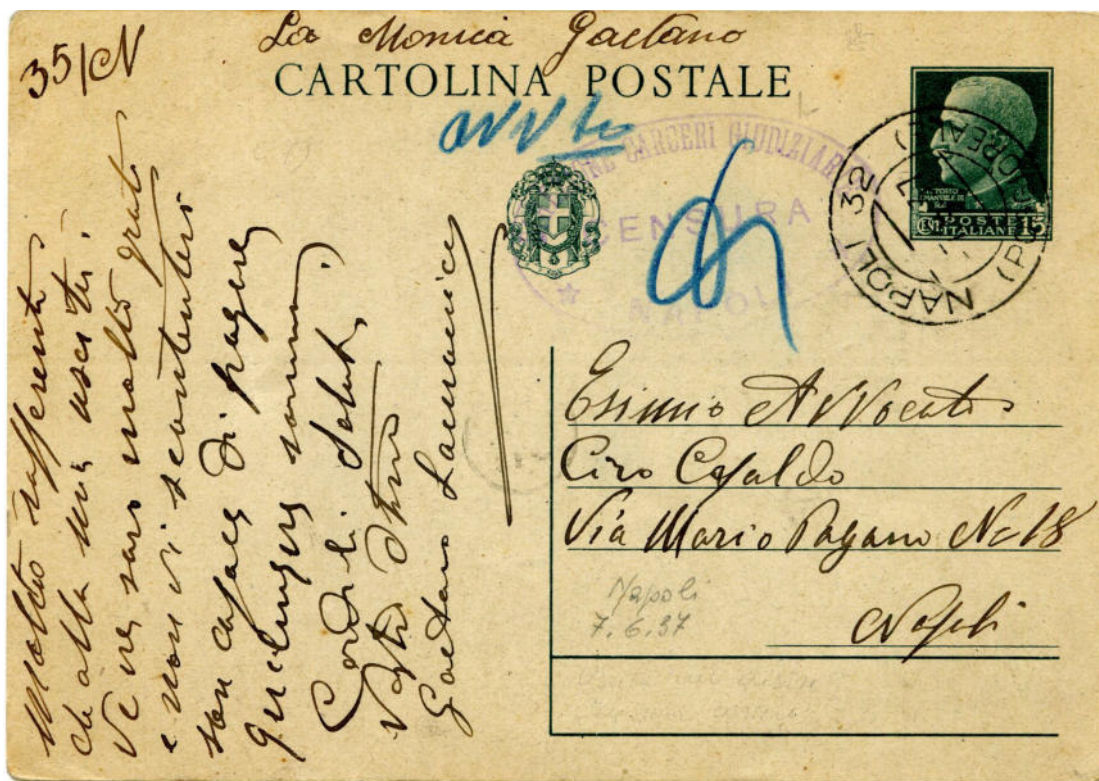 La Monica Gaetano
CARTOLINA POSTALE
35/N
CARCERI GIUDIZIARIE
CENSURA
NAPOLI
NAPOLI 32
VITTORIO
EMANUELE III
CENT. POSTE 15
ITALIANE
Esimio Avvocato
Ciro Cafaldo
Via Mario Pagano No 18
Napoli
Napoli
7.6.37
Molto sofferente
che alla mia uscita
Ve ne sarò molto grato
e non vi scontentero
son capace di pagare
qualunque somma.
Cordiali saluti
Vostro
Gaetano Lamonica